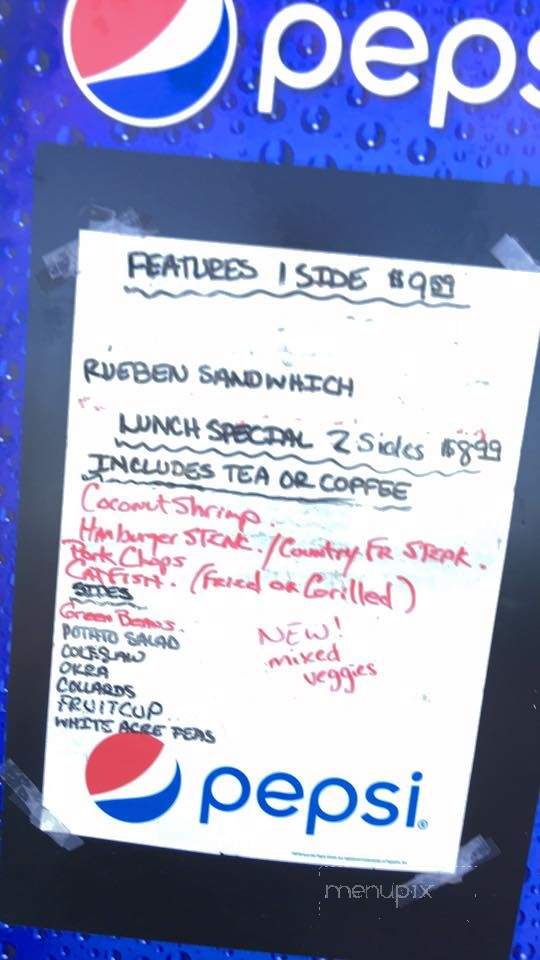 peps
FEATURES 1 SIDE $9.59
RUEBEN SANDWHICH
LUNCH SPECIAL 2 Sides $8.99
INCLUDES TEA OR COFFEE
Coconut Shrimp.
Hamburger STEAK. / Country FR STEAK.
Pork Chops
CATFISH. (Fried or Grilled)
SIDES
Green Beans.
POTATO SALAD
COLESLAW
OKRA
COLLARDS
FRUITCUP
WHITE ACRE PEAS
NEW!
mixed
veggies
pepsi
menupix